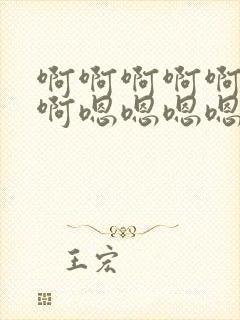 啊啊啊啊啊
啊嗯嗯嗯嗯
王宏